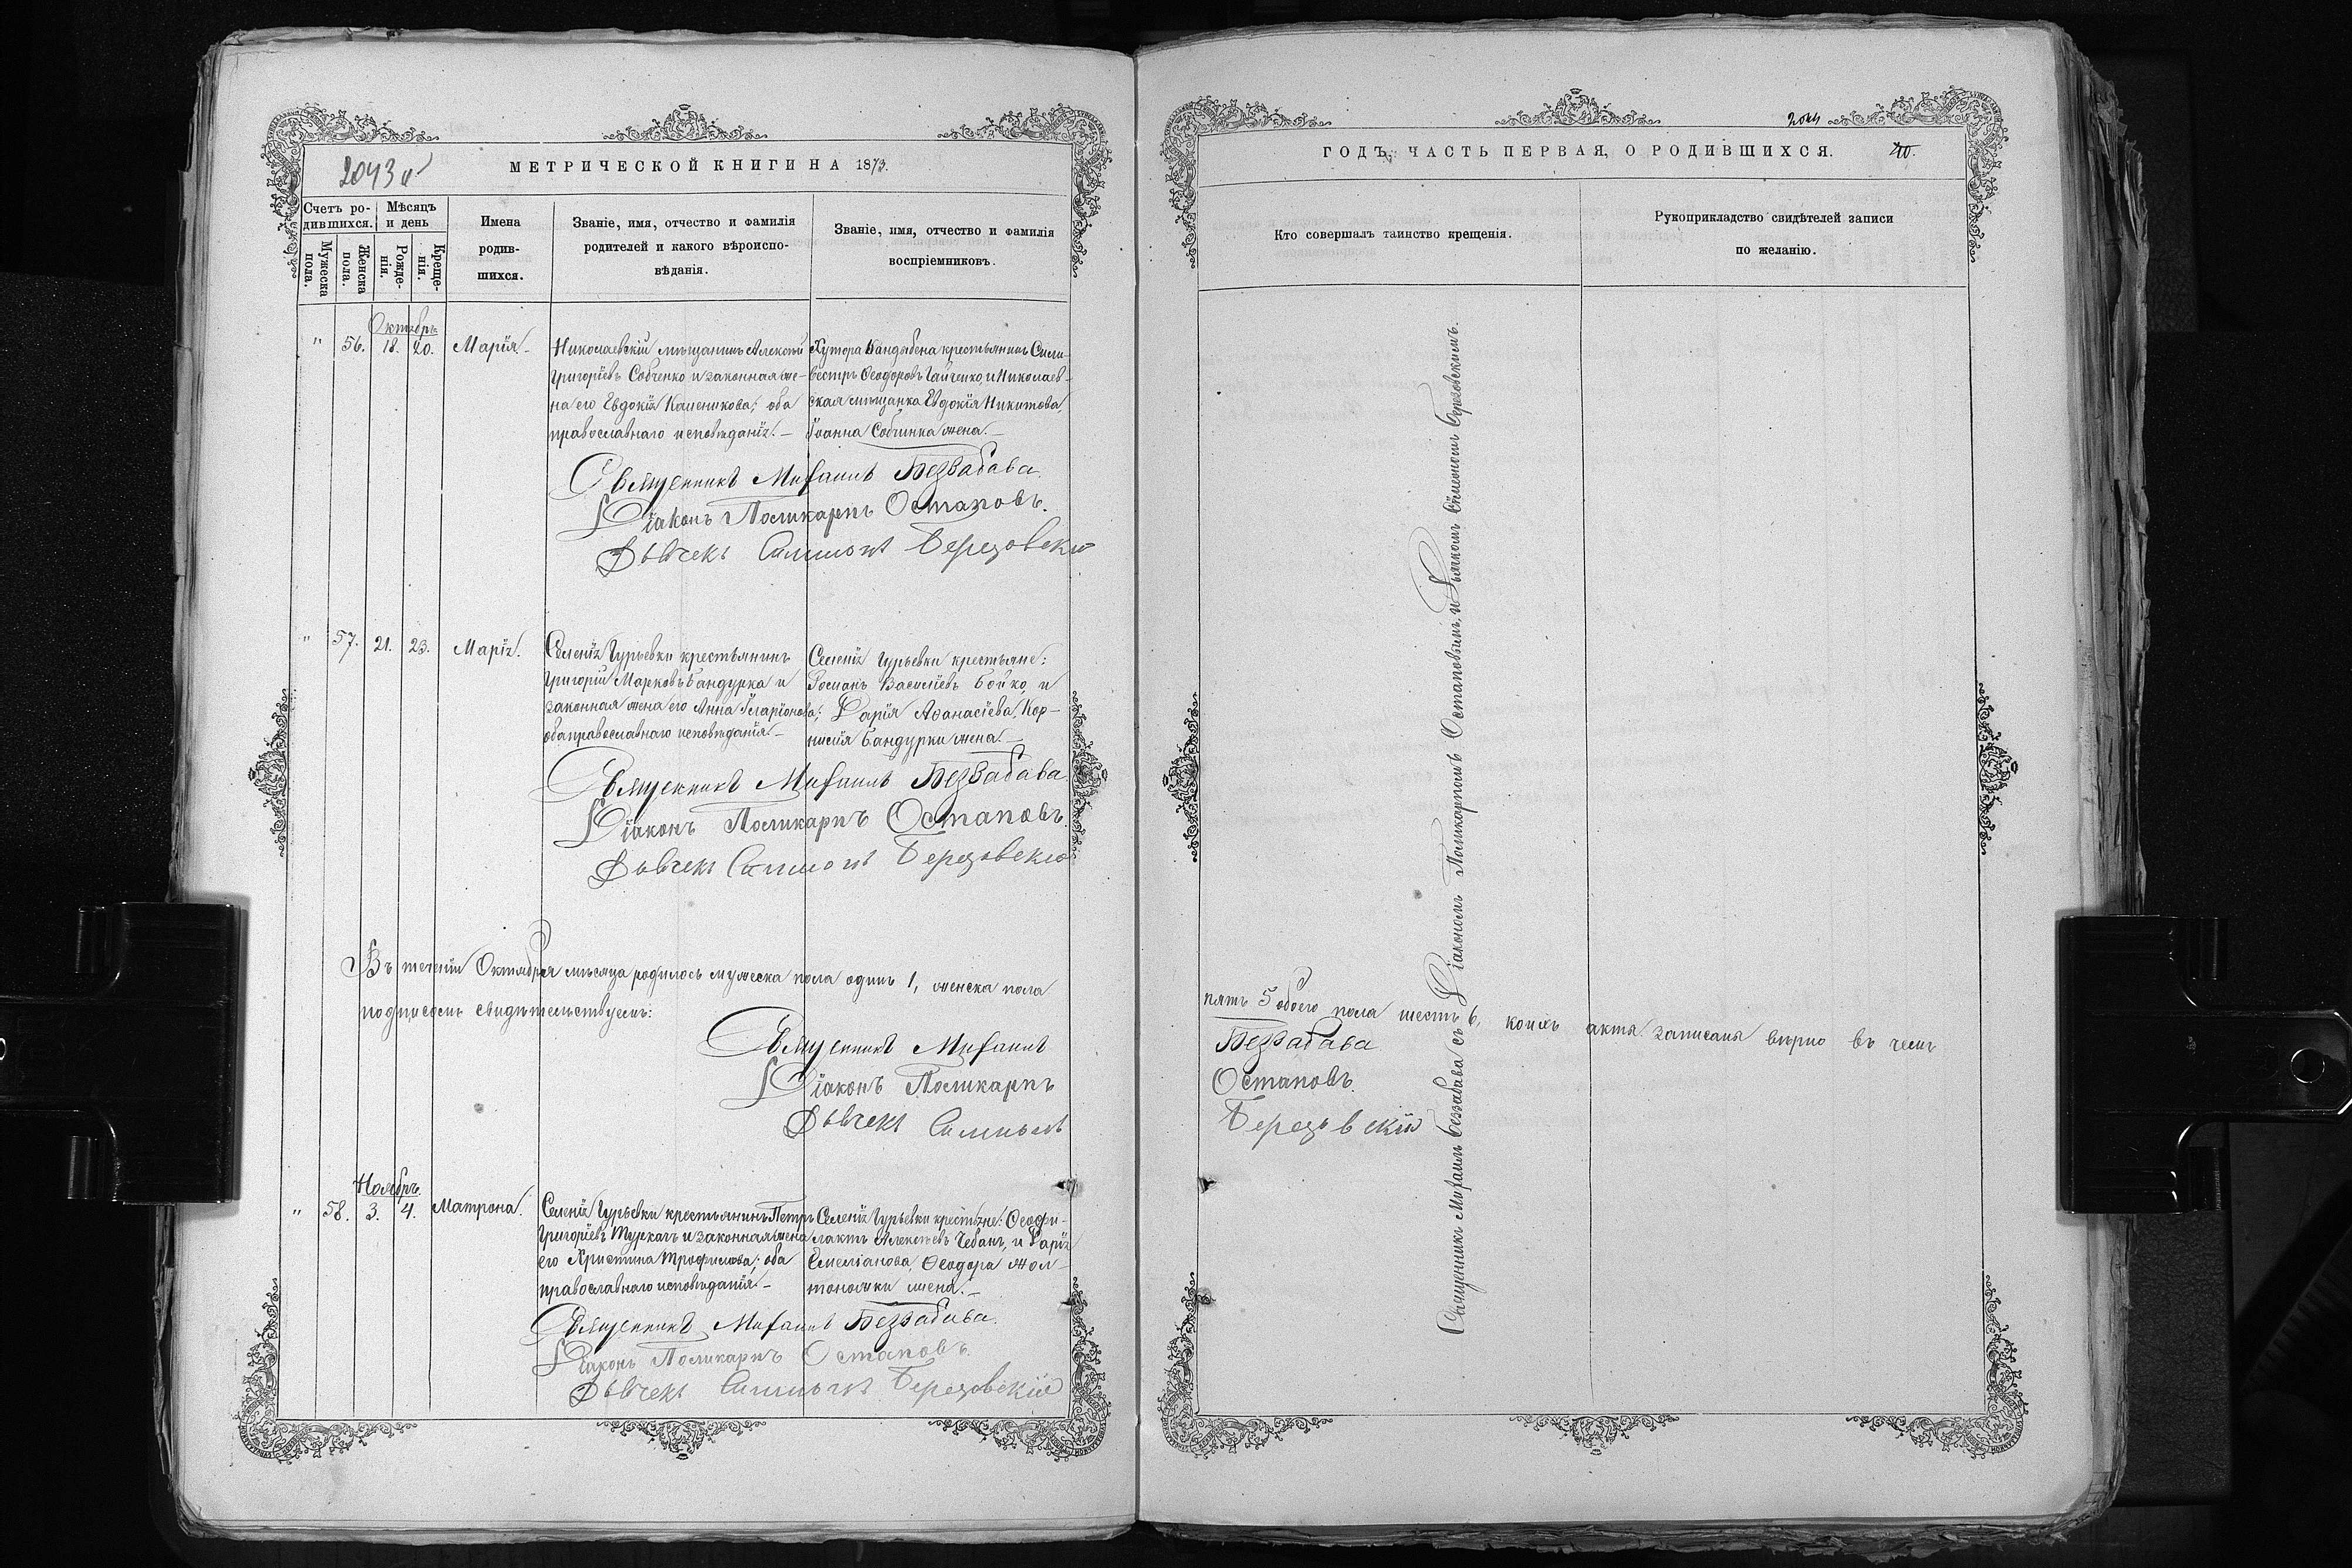 2043 об
МЕТРИЧЕСКОЙ КНИГИ НА 1873.
Счетъ ро-
дившихся.
Мѣсяцъ
и день
Мужеска
пола.
Женска
пола.
Рожде-
нія.
Креще-
нія.
Имена
родив-
шихся.
Званіе, имя, отчество и фамилія
родителей и какого вѣроиспо-
вѣданія.
Званіе, имя, отчество и фамилія
воспріемниковъ.
Октябрь
" 56. 18. 20. Марія.
Николаевскій мѣщанинъ Алексѣй
Григоріевъ Собченко и законная же-
на его Евдокія; оба
православнаго исповѣданія.
Хутора крестьянинъ Сили-
вестръ Ѳеодоровъ Гайченко, и Николаев-
ская мѣщанка Евдокія Никитова,
Іоанна Собчинка жена.
Священникъ Михаилъ Беззабава.
Діаконъ Поликарпъ Остаповъ.
Дьячекъ Симеонъ Березовскій
" 57. 21. 23. Марія.
Селенія Гурьевки крестьянинъ
Григорій Марковъ Бандурка и
законная жена его Анна Іларіонова;
оба православнаго исповѣданія
Селенія Гурьевки крестьяне:
Романъ Василіевъ Бойко, и
Дарія Аѳанасіева, Кор-
нилія Бандурки жена
Священникъ Михаилъ Беззабава.
Діаконъ Поликарпъ Остаповъ.
Дьячекъ Симеонъ Березовскій
Въ теченіи Октября мѣсяца родилось мужеска пола одинъ 1, женска пола
подписомъ свидѣтельствуемъ:
Священникъ Михаилъ
Діаконъ Поликарпъ
Дьячекъ Симеонъ
Ноябрь.
" 58. 3. 4. Матрона.
Селенія Гурьевки крестьянинъ Петръ
Григоріевъ Туркачъ и законная жена
его Христина Трофимова; оба
православнаго исповѣданія
Селенія Гурьевки крестьяне: Ѳеофи-
лактъ Алексѣевъ Чебанъ, и Дарія
Емеліанова, Ѳеодора Жол-
тоножки жена.
Священникъ Михаилъ Беззабава.
Діаконъ Поликарпъ Остаповъ.
Дьячекъ Симеонъ Березовскій
2044
ГОДЪ, ЧАСТЬ ПЕРВАЯ, О РОДИВШИХСЯ.
Кто совершалъ таинство крещенія.
Рукоприкладство свидѣтелей записи
по желанію.
Священникъ Михаилъ Беззабава съ Діакономъ Поликарпомъ Остаповымъ, и Дьячкомъ Симеономъ Березовскимъ.
пять 5 обоего пола шесть 6, коихъ акты записаны вѣрно въ чемъ
Беззабава
Остаповъ.
Березовскій